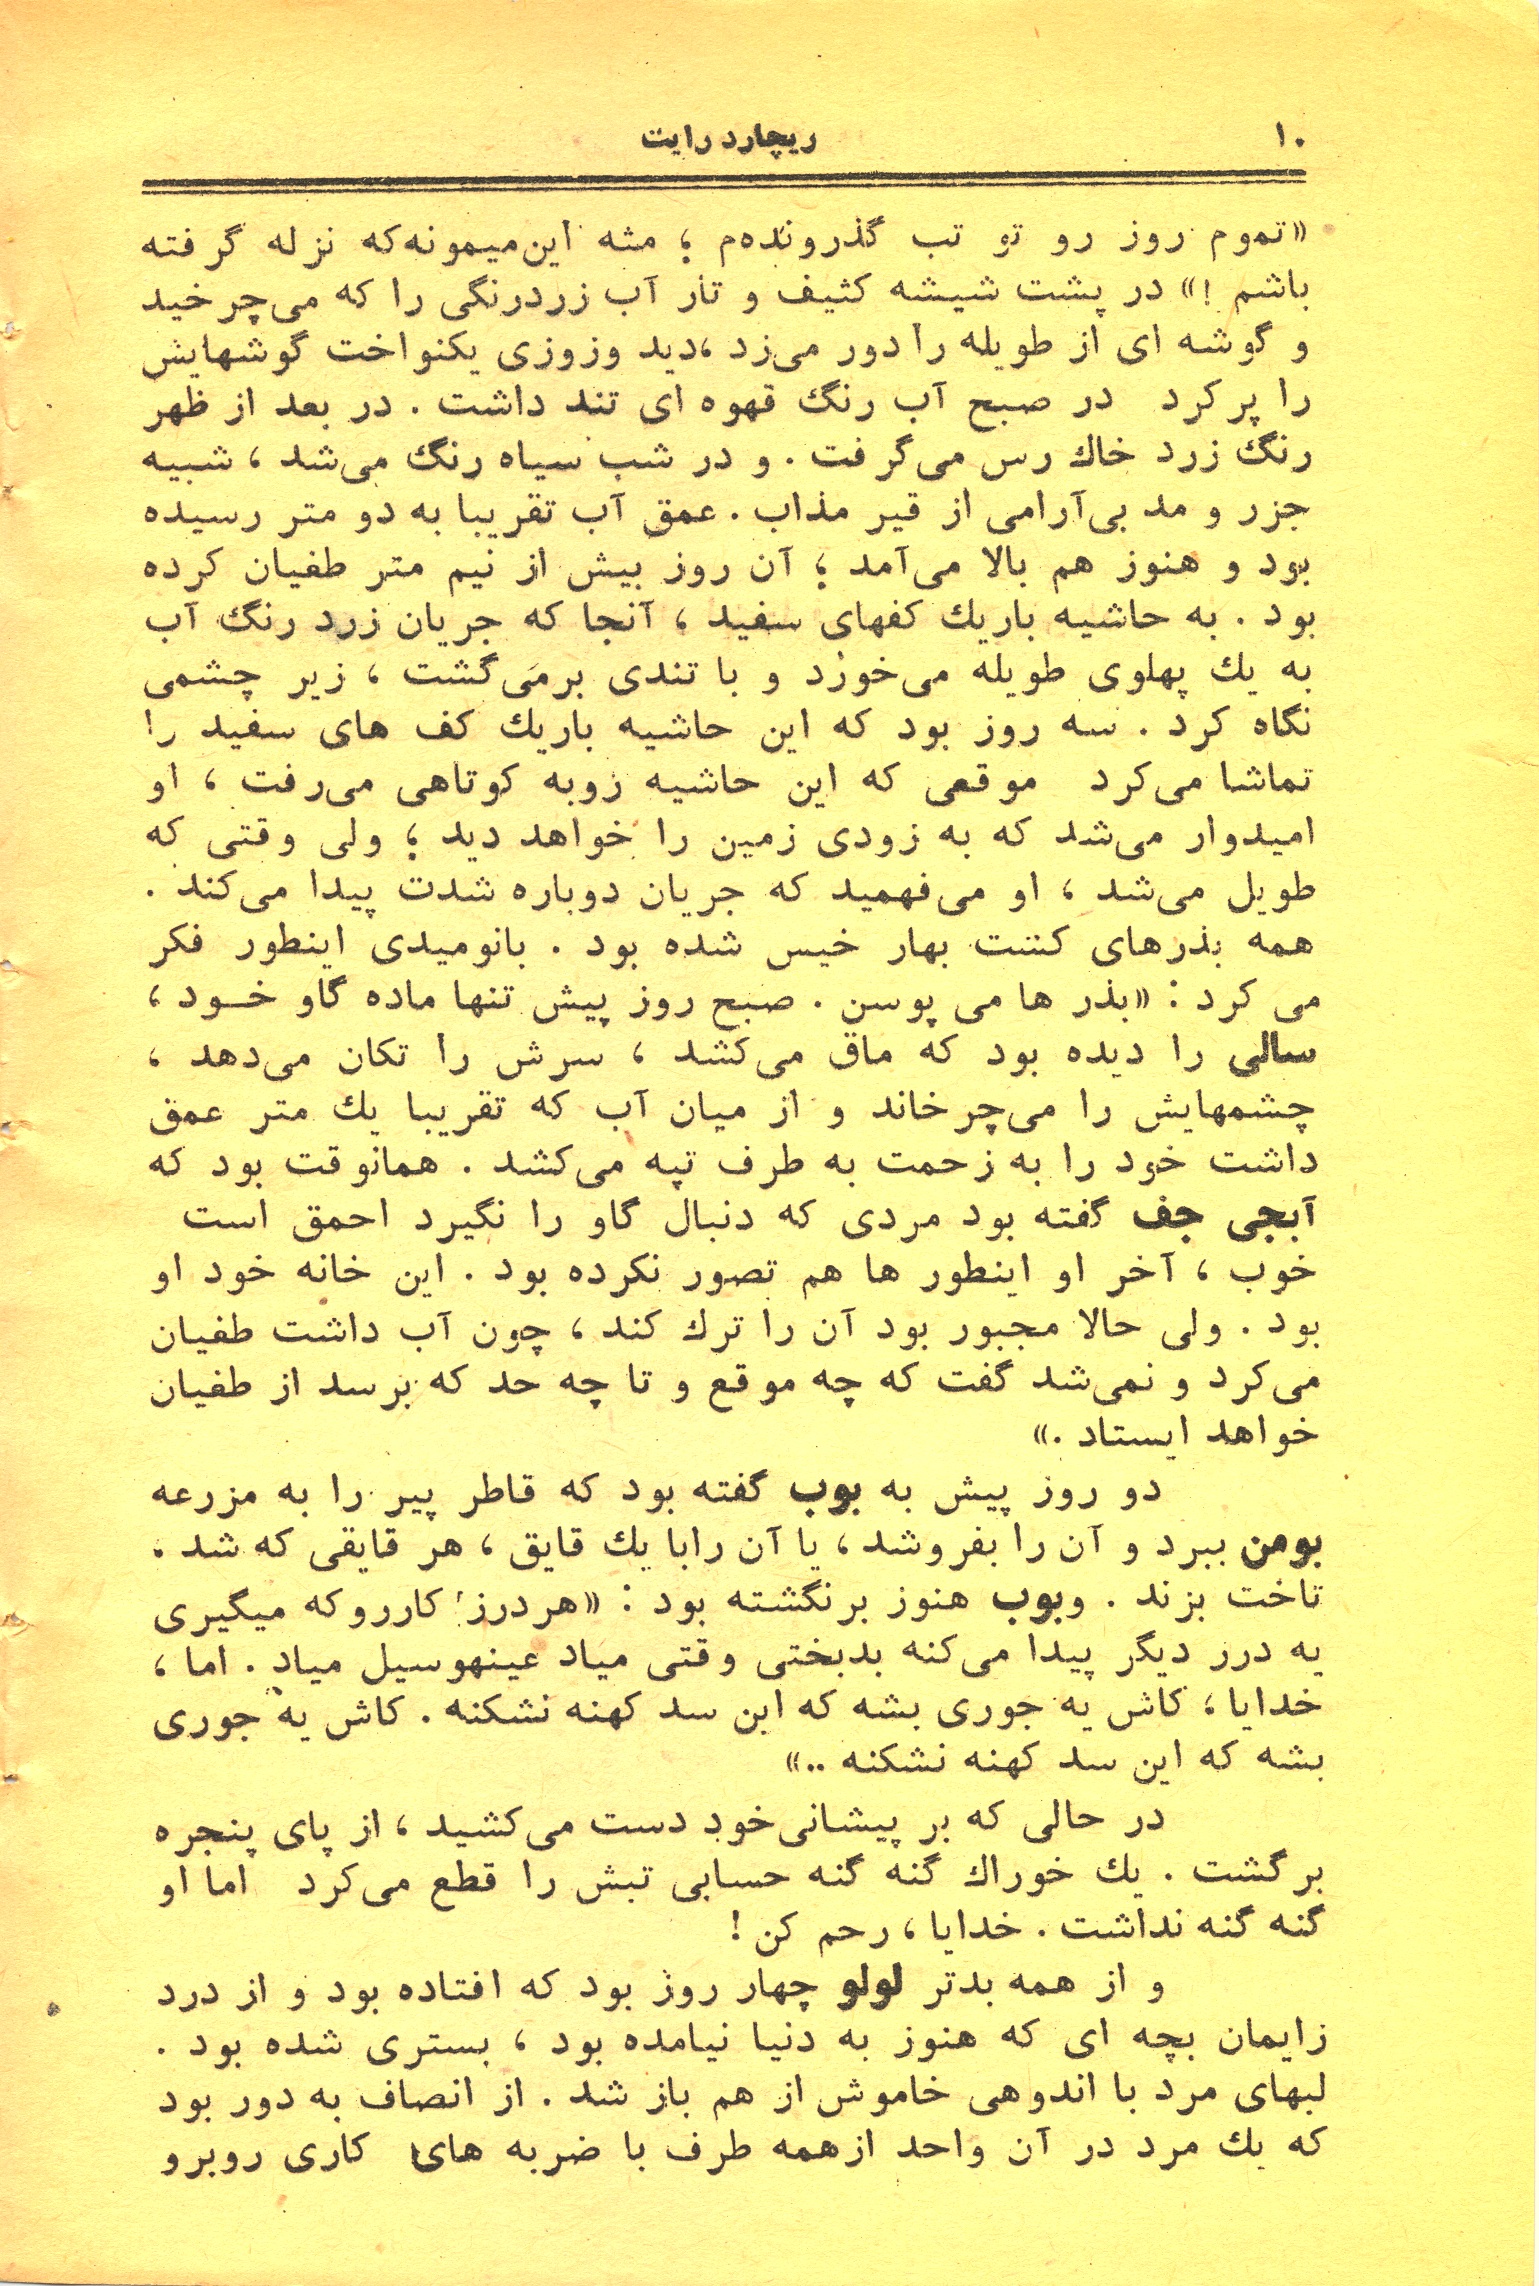 ۱۰ ریچارد رایت
«تموم روز رو تو تب گذرونده‌م ؛ مثه این میمونه که نزله گرفته
باشم !» در پشت شیشه کثیف و تار آب زردرنگی را که می‌چرخید
و گوشه ای از طویله را دور می‌زد ،دید وزوزی یکنواخت گوشهایش
را پر کرد در صبح آب رنگ قهوه ای تند داشت . در بعد از ظهر
رنگ زرد خاك رس می‌گرفت . و در شب سیاه رنگ می‌شد ، شبیه
جزر و مد بی‌آرامی از قیر مذاب . عمق آب تقریبا به دو متر رسیده
بود و هنوز هم بالا می‌آمد ؛ آن روز بیش از نیم متر طفیان کرده
بود . به حاشیه باریك کفهای سفید ، آنجا که جریان زرد رنگ آب
به یك پهلوی طویله می‌خورد و با تندی برمی‌گشت ، زیر چشمی
نگاه کرد . سه روز بود که این حاشیه باریك کف های سفید را
تماشا می‌کرد موقعی که این حاشیه روبه کوتاهی می‌رفت ، او
امیدوار می‌شد که به زودی زمین را خواهد دید ؛ ولی وقتی که
طویل می‌شد ، او می‌فهمید که جریان دوباره شدت پیدا می‌کند .
همه بذرهای کشت بهار خیس شده بود . بانومیدی اینطور فکر
می کرد : «بذر ها می پوسن . صبح روز پیش تنها ماده گاو خود ،
سالی را دیده بود که ماق می‌کشد ، سرش را تکان می‌دهد ،
چشمهایش را می‌چرخاند و از میان آب که تقریبا یك متر عمق
داشت خود را به زحمت به طرف تپه می‌کشد . همانوقت بود که
آبجی جف گفته بود مردی که دنبال گاو را نگیرد احمق است
خوب ، آخر او اینطور ها هم تصور نکرده بود . این خانه خود او
بود . ولی حالا مجبور بود آن را ترك کند ، چون آب داشت طفیان
می‌کرد و نمی‌شد گفت که چه موقع و تا چه حد که برسد از طفیان
خواهد ایستاد .»
دو روز پیش به بوب گفته بود که قاطر پیر را به مزرعه
بومن ببرد و آن را بفروشد ، یا آن رابا یك قایق ، هر قایقی که شد ،
تاخت بزند . وبوب هنوز برنگشته بود : «هردرز کارروکه میگیری
یه درز دیگر پیدا می‌کنه بدبختی وقتی میاد عینهوسیل میاد . اما ،
خدایا ، کاش یه جوری بشه که این سد کهنه نشکنه . کاش یه جوری
بشه که این سد کهنه نشکنه ..»
در حالی که بر پیشانی خود دست می‌کشید ، از پای پنجره
برگشت . یك خوراك گنه گنه حسابی تبش را قطع می‌کرد اما او
گنه گنه نداشت . خدایا ، رحم کن !
و از همه بدتر لولو چهار روز بود که افتاده بود و از درد
زایمان بچه ای که هنوز به دنیا نیامده بود ، بستری شده بود .
لبهای مرد با اندوهی خاموش از هم باز شد . از انصاف به دور بود
که یك مرد در آن واحد ازهمه طرف با ضربه های کاری روبرو